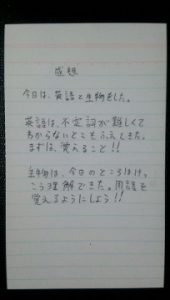 感想
今日は、英語と生物をした。
英語は、不定詞が難しくて
わからないところふえてきた。
まずは、覚えること!!
生物は、今日のところはけっ
こう理解できた。用語を
覚えるようにしよう!!